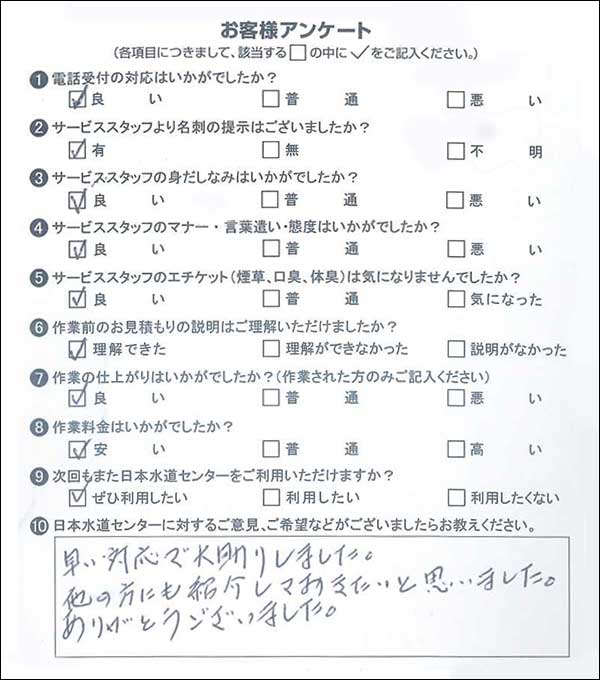 お客様アンケート
(各項目につきまして、該当する□の中に✓をご記入ください。)
❶電話受付の対応はいかがでしたか?
☑良い □普通 □悪い
❷サービススタッフより名刺の提示はございましたか?
☑有 □無 □不明
❸サービススタッフの身だしなみはいかがでしたか?
☑良い □普通 □悪い
❹サービススタッフのマナー・言葉遣い・態度はいかがでしたか?
☑良い □普通 □悪い
❺サービススタッフのエチケット(煙草、口臭、体臭)は気になりませんでしたか?
☑良い □普通 □気になった
❻作業前のお見積もりの説明はご理解いただけましたか?
☑理解できた □理解ができなかった □説明がなかった
❼作業の仕上がりはいかがでしたか?(作業された方のみご記入ください)
☑良い □普通 □悪い
❽作業料金はいかがでしたか?
☑安い □普通 □高い
❾次回もまた日本水道センターをご利用いただけますか?
☑ぜひ利用したい □利用したい □利用したくない
❿日本水道センターに対するご意見、ご希望などがございましたらお教えください。
早い対応で大助りしました。
他の方にも紹介しておきたいと思いました。
ありがとうございました。